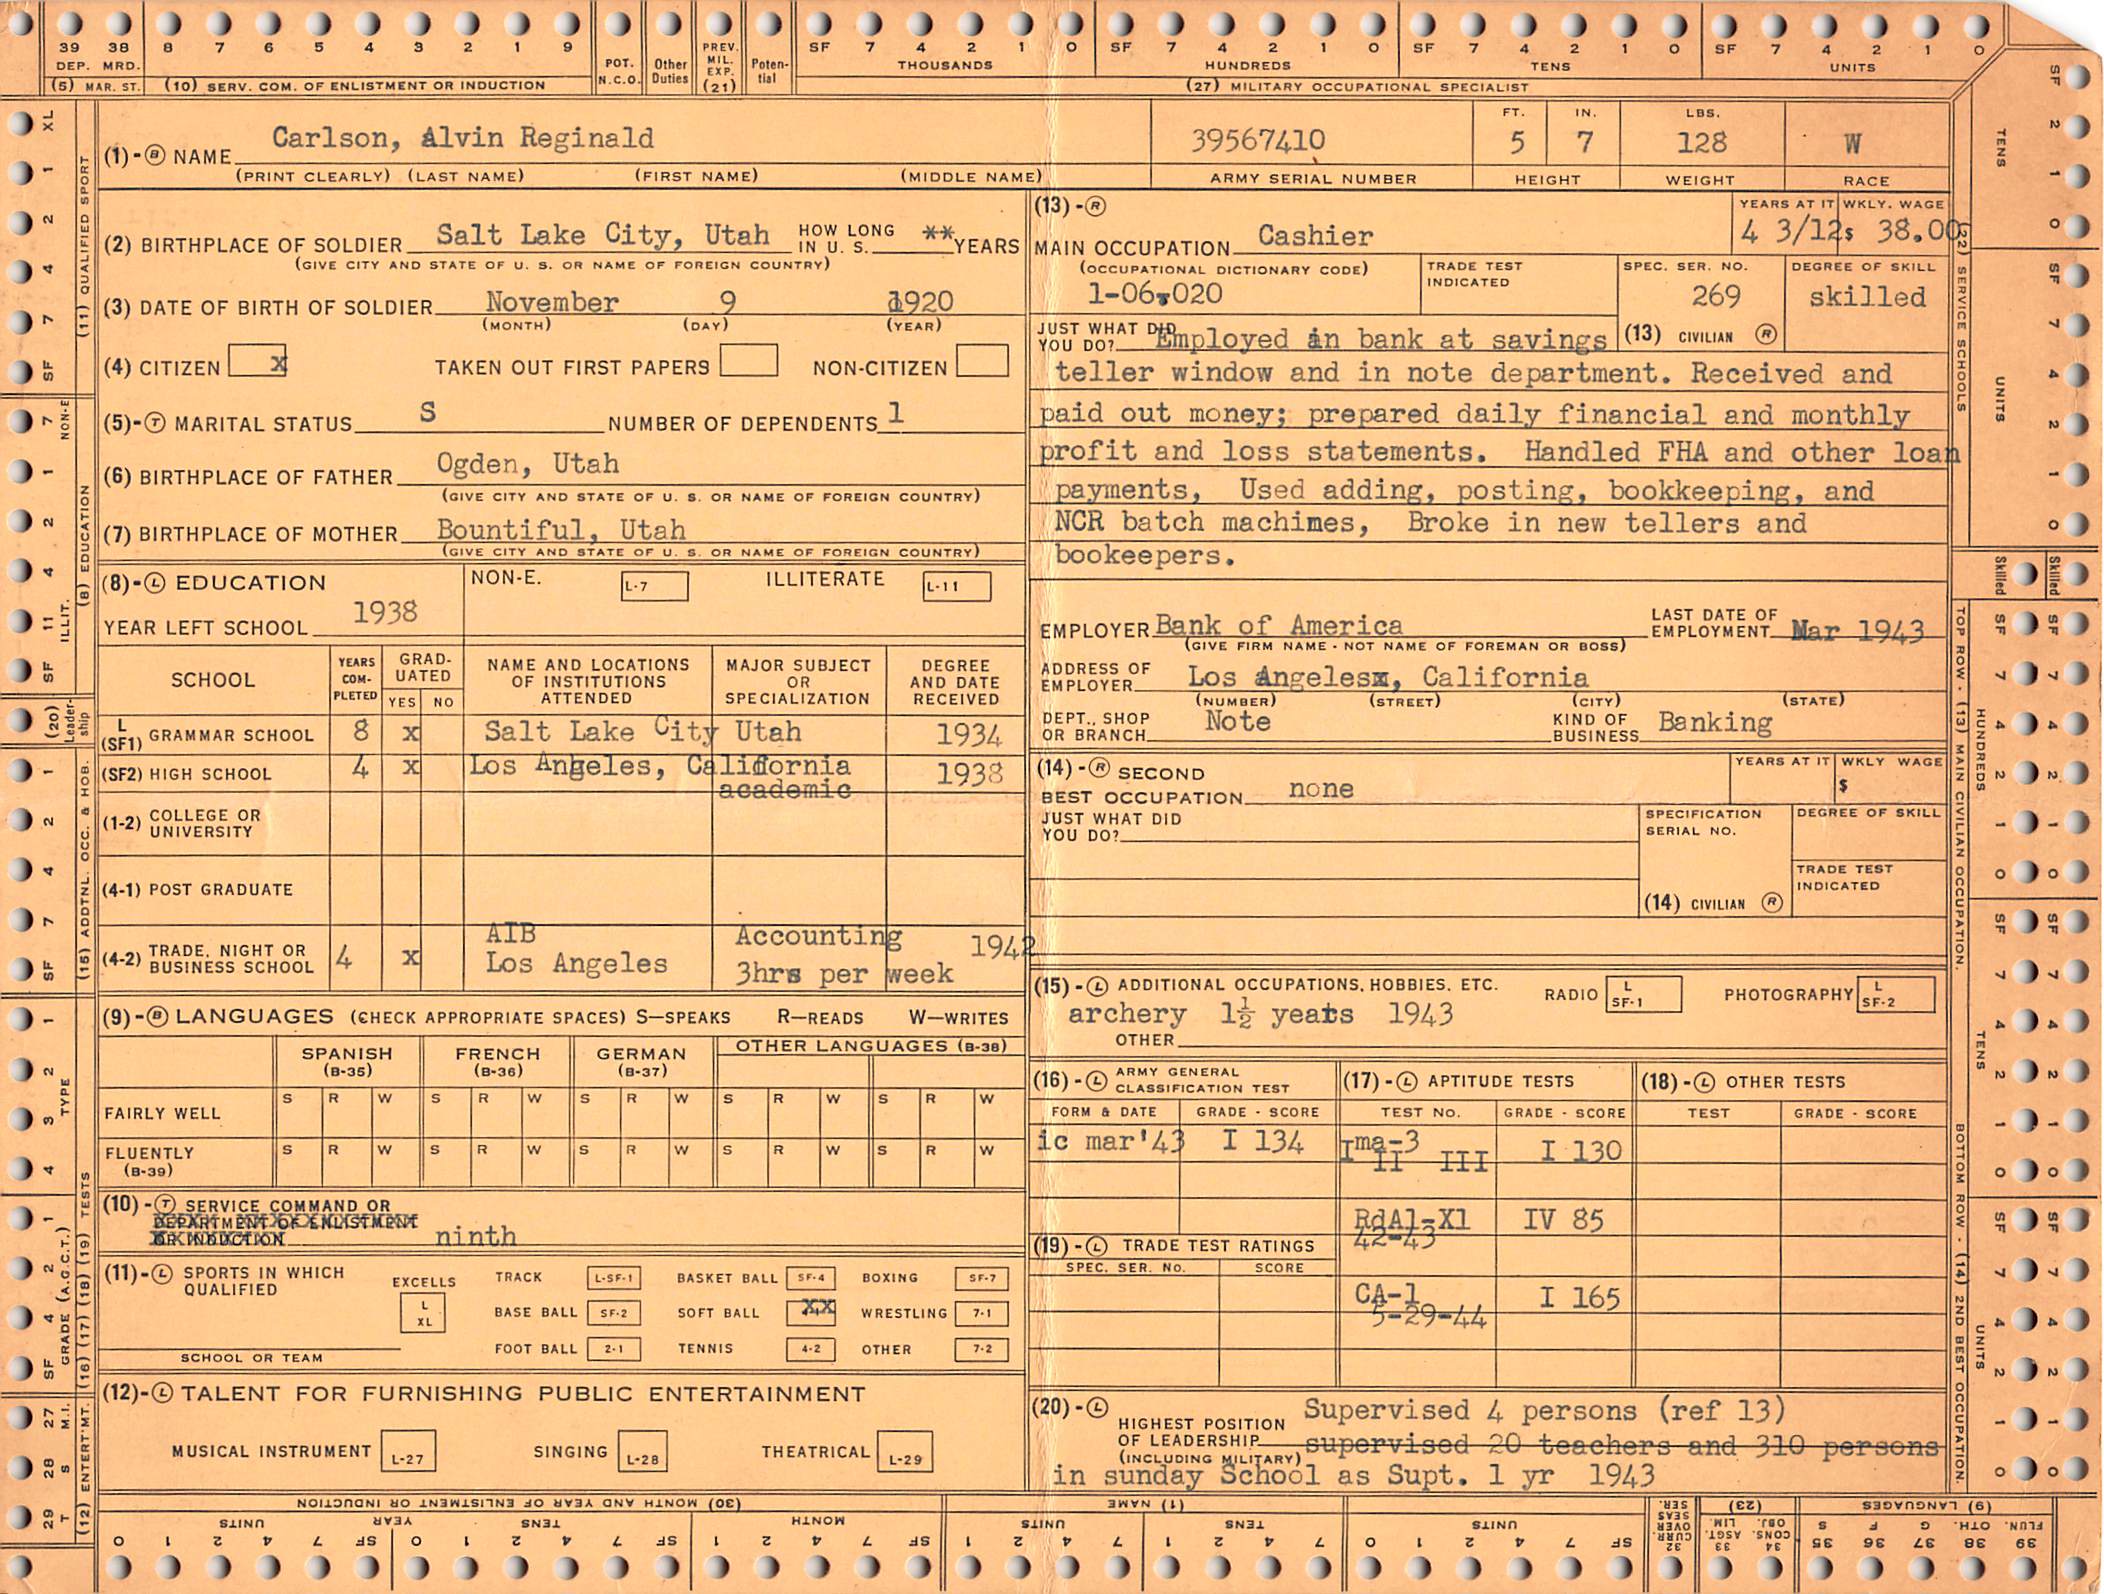 39 38 8 7 6 5 4 3 2 1 9 POT. N.C.O. Other Duties PREV. MIL. EXP. (21) Poten- tial SF 7 4 2 1 0 SF 7 4 2 1 0 SF 7 4 2 1 0 SF 7 4 2 1 0
DEP. MRD. THOUSANDS HUNDREDS TENS UNITS
(5) MAR. ST. (10) SERV. COM. OF ENLISTMENT OR INDUCTION (27) MILITARY OCCUPATIONAL SPECIALIST
Carlson, Alvin Reginald
(1)-(B) NAME
(PRINT CLEARLY) (LAST NAME) (FIRST NAME) (MIDDLE NAME)
39567410
ARMY SERIAL NUMBER
FT. IN. LBS.
5 7 128 W
HEIGHT WEIGHT RACE
(2) BIRTHPLACE OF SOLDIER Salt Lake City, Utah HOW LONG IN U. S. ** YEARS
(GIVE CITY AND STATE OF U. S. OR NAME OF FOREIGN COUNTRY)
(3) DATE OF BIRTH OF SOLDIER November 9 1920
(MONTH) (DAY) (YEAR)
(4) CITIZEN x TAKEN OUT FIRST PAPERS NON-CITIZEN
(5)-(T) MARITAL STATUS S NUMBER OF DEPENDENTS 1
(6) BIRTHPLACE OF FATHER Ogden, Utah
(GIVE CITY AND STATE OF U. S. OR NAME OF FOREIGN COUNTRY)
(7) BIRTHPLACE OF MOTHER Bountiful, Utah
(GIVE CITY AND STATE OF U. S. OR NAME OF FOREIGN COUNTRY)
(8)-(L) EDUCATION NON-E. L-7 ILLITERATE L-11
YEAR LEFT SCHOOL 1938
SCHOOL YEARS COM- PLETED GRAD- UATED YES NO NAME AND LOCATIONS OF INSTITUTIONS ATTENDED MAJOR SUBJECT OR SPECIALIZATION DEGREE AND DATE RECEIVED
L (SF1) GRAMMAR SCHOOL 8 x Salt Lake City Utah 1934
(SF2) HIGH SCHOOL 4 x Los Angeles, California 1938
academic
(1-2) COLLEGE OR UNIVERSITY
(4-1) POST GRADUATE
(4-2) TRADE, NIGHT OR BUSINESS SCHOOL 4 x AIB Los Angeles Accounting 3hrs per week 1942
(9)-(B) LANGUAGES (CHECK APPROPRIATE SPACES) S—SPEAKS R—READS W—WRITES
SPANISH (B-35) FRENCH (B-36) GERMAN (B-37) OTHER LANGUAGES (B-38)
FAIRLY WELL S R W S R W S R W S R W S R W
FLUENTLY (B-39) S R W S R W S R W S R W S R W
(10)-(T) SERVICE COMMAND OR
DEPARTMENT OF ENLISTMENT
OR INDUCTION ninth
(11)-(L) SPORTS IN WHICH QUALIFIED EXCELLS L XL
TRACK L-SF-1 BASKET BALL SF-4 BOXING SF-7
BASE BALL SF-2 SOFT BALL XX WRESTLING 7-1
FOOT BALL 2-1 TENNIS 4-2 OTHER 7-2
SCHOOL OR TEAM
(12)-(L) TALENT FOR FURNISHING PUBLIC ENTERTAINMENT
MUSICAL INSTRUMENT L-27 SINGING L-28 THEATRICAL L-29
(13)-(R)
MAIN OCCUPATION Cashier
YEARS AT IT WKLY. WAGE
4 3/12 $ 38.00
(OCCUPATIONAL DICTIONARY CODE) TRADE TEST INDICATED SPEC. SER. NO. DEGREE OF SKILL
1-06.020 269 skilled
(13) CIVILIAN (R)
JUST WHAT DID YOU DO? Employed in bank at savings
teller window and in note department. Received and
paid out money; prepared daily financial and monthly
profit and loss statements. Handled FHA and other loan
payments, Used adding, posting, bookkeeping, and
NCR batch machines, Broke in new tellers and
bookeepers.
EMPLOYER Bank of America LAST DATE OF EMPLOYMENT Mar 1943
(GIVE FIRM NAME - NOT NAME OF FOREMAN OR BOSS)
ADDRESS OF EMPLOYER Los Angelesx, California
(NUMBER) (STREET) (CITY) (STATE)
DEPT., SHOP OR BRANCH Note KIND OF BUSINESS Banking
(14)-(R) SECOND BEST OCCUPATION none YEARS AT IT WKLY WAGE $
JUST WHAT DID YOU DO?
SPECIFICATION SERIAL NO. DEGREE OF SKILL
TRADE TEST INDICATED
(14) CIVILIAN (R)
(15)-(L) ADDITIONAL OCCUPATIONS, HOBBIES, ETC. RADIO L SF-1 PHOTOGRAPHY L SF-2
archery 1½ years 1943
OTHER
(16)-(L) ARMY GENERAL CLASSIFICATION TEST (17)-(L) APTITUDE TESTS (18)-(L) OTHER TESTS
FORM & DATE GRADE - SCORE TEST NO. GRADE - SCORE TEST GRADE - SCORE
ic mar'43 I 134 Ima-3 I II III I 130
RdA1-X1 IV 85
42-43
(19)-(L) TRADE TEST RATINGS
SPEC. SER. No. SCORE
CA-1 I 165
5-29-44
(20)-(L) HIGHEST POSITION OF LEADERSHIP (INCLUDING MILITARY)
Supervised 4 persons (ref 13)
supervised 20 teachers and 310 persons
in sunday School as Supt. 1 yr 1943
XL 1 2 4 7 SF (11) QUALIFIED SPORT
7 NON-E 1 2 4 11 ILLIT. SF (8) EDUCATION
(20) Leader- ship
1 2 4 7 SF (15) ADDTNL. OCC. & HOB.
1 2 3 4 TYPE
1 2 4 SF GRADE (A.G.C.T.) (16) (17) (18) (19) TESTS
27 M.I. 28 S 29 T (12) ENTERT'MT.
SF 2 1 0 TENS
SF 7 4 2 1 0 UNITS
(22) SERVICE SCHOOLS
Skilled Skilled
SF 7 4 2 1 0 HUNDREDS
SF 7 4 2 1 0 TENS
SF 7 4 2 1 0 UNITS
TOP ROW - (13) MAIN CIVILIAN OCCUPATION.
BOTTOM ROW - (14) 2ND BEST OCCUPATION.
(30) MONTH AND YEAR OF ENLISTMENT OR INDUCTION (1) NAME CURR. OVER SEAS SER. (23) (9) LANGUAGES
UNITS YEAR TENS MONTH UNITS TENS UNITS
0 1 2 4 7 SF 0 1 2 4 7 SF 1 2 4 7 SF 1 2 4 7 1 2 4 7 0 1 2 4 7 SF 32 33 ASGT. LIM. 34 CONS. OBJ. 35 S 36 F 37 G 38 OTH. 39 FLUN.